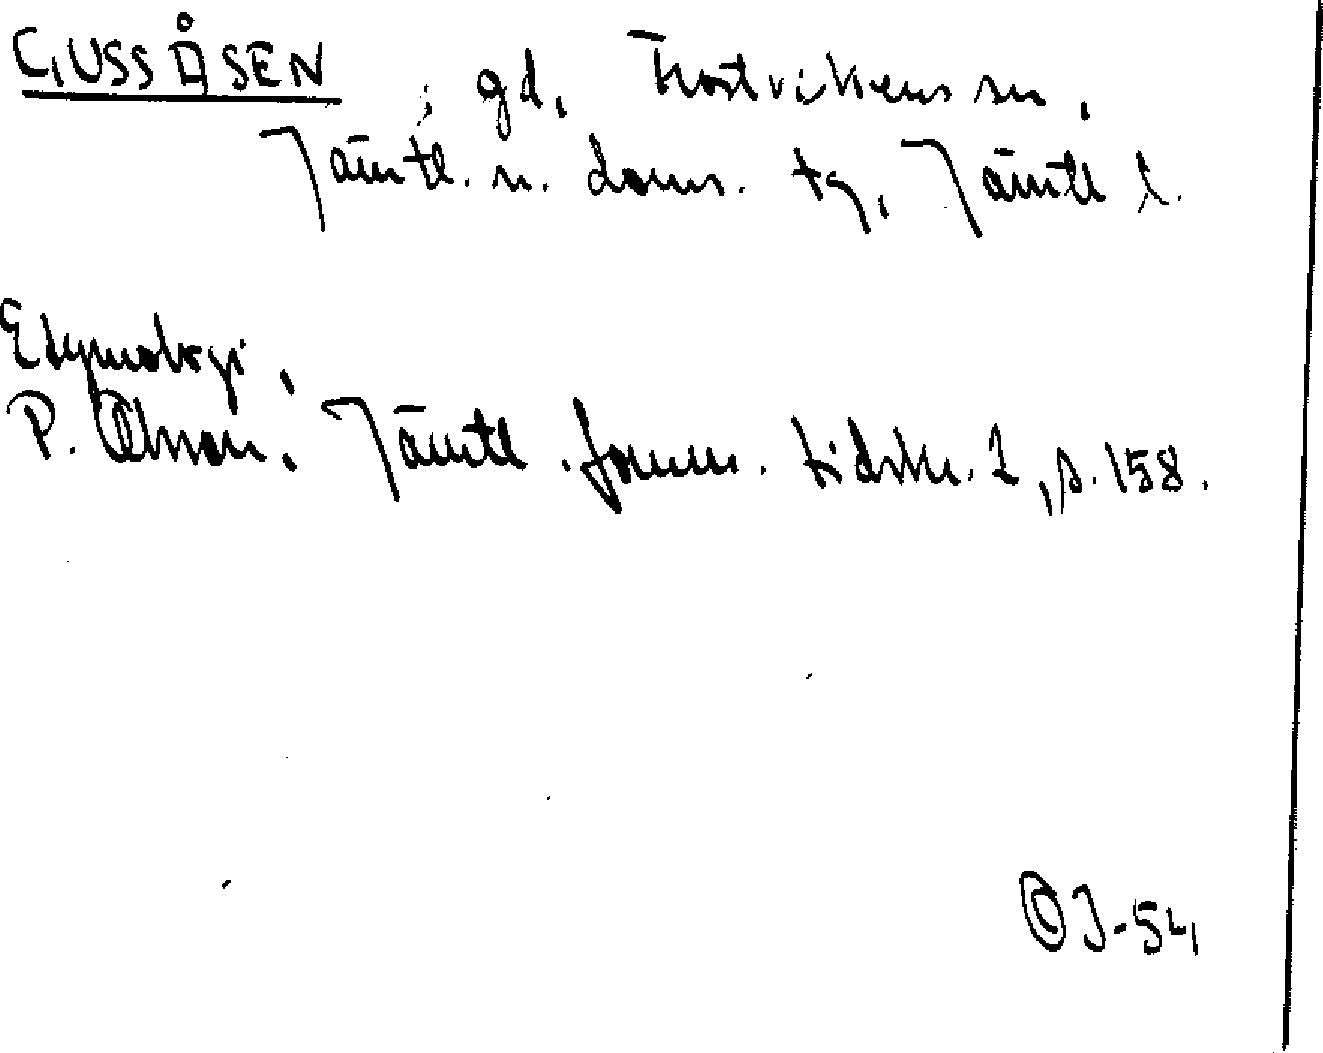 GUSSÅSEN, gd, Trostvikens sn,
Jämtl. n. doms. tg, Jämtl l.
Etymologi,
P. Olsson, Jämtl. fornm. tidskr. 1, s. 158.
J-54